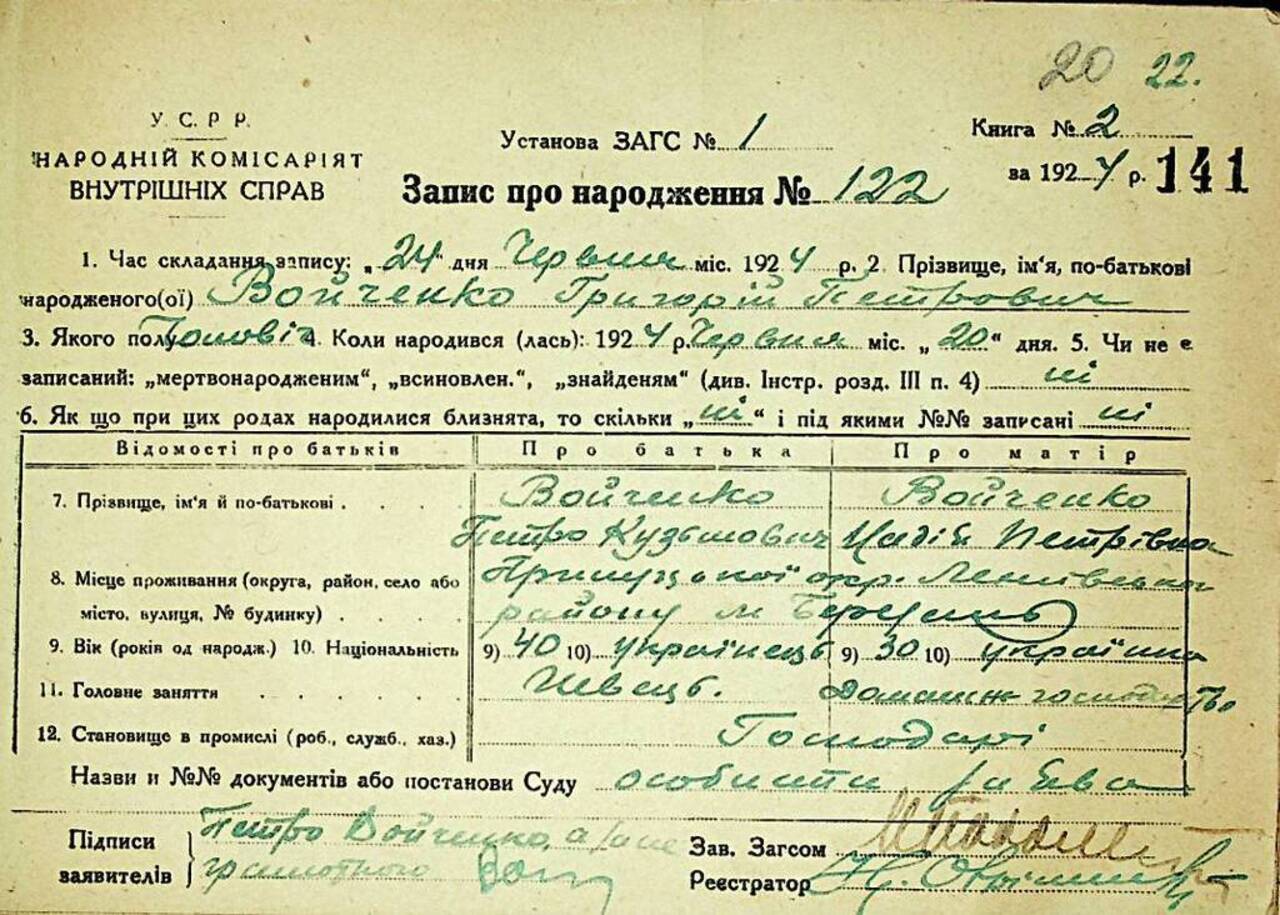 20 22.
У. С. Р. Р.
НАРОДНІЙ КОМІСАРІЯТ
ВНУТРІШНІХ СПРАВ
Установа ЗАГС № 1
Книга № 2
за 1924 р. 141
Запис про народження № 122
1. Час складання запису: „24 дня Червня міс. 1924 р. 2. Прізвище, ім'я, по-батькові
народженого(ої) Войченко Григорій Петрович
3. Якого полу 4. Коли народився (лась): 1924 р. Червня міс. „20" дня. 5. Чи не є
записаний: „мертвонародженим", „всиновлен.", „знайденям" (див. Інстр. розд. III п. 4) ні
6. Як що при цих родах народилися близнята, то скільки „ні" і під якими №№ записані ні
Відомості про батьків Про батька Про матір
7. Прізвище, ім'я й по-батькові . . . . Войченко Войченко
Петро Кузьмович Надія Петрівна
8. Місце проживання (округа, район, село або Прилуцької окр.
місто, вулиця, № будинку) . . . . району м
9. Вік (років од народж.) 10. Національність 9) 40 10) українець 9) 30 10) українка
11. Головне заняття . . . . . Швець. Домашнє господарство
12. Становище в промислі (роб., служб., хаз.) Господарі
Назви и №№ документів або постанови Суду особиста заява
Підписи
заявителів
Петро Войченко, а за не
грамотного
Зав. Загсом
Реєстратор